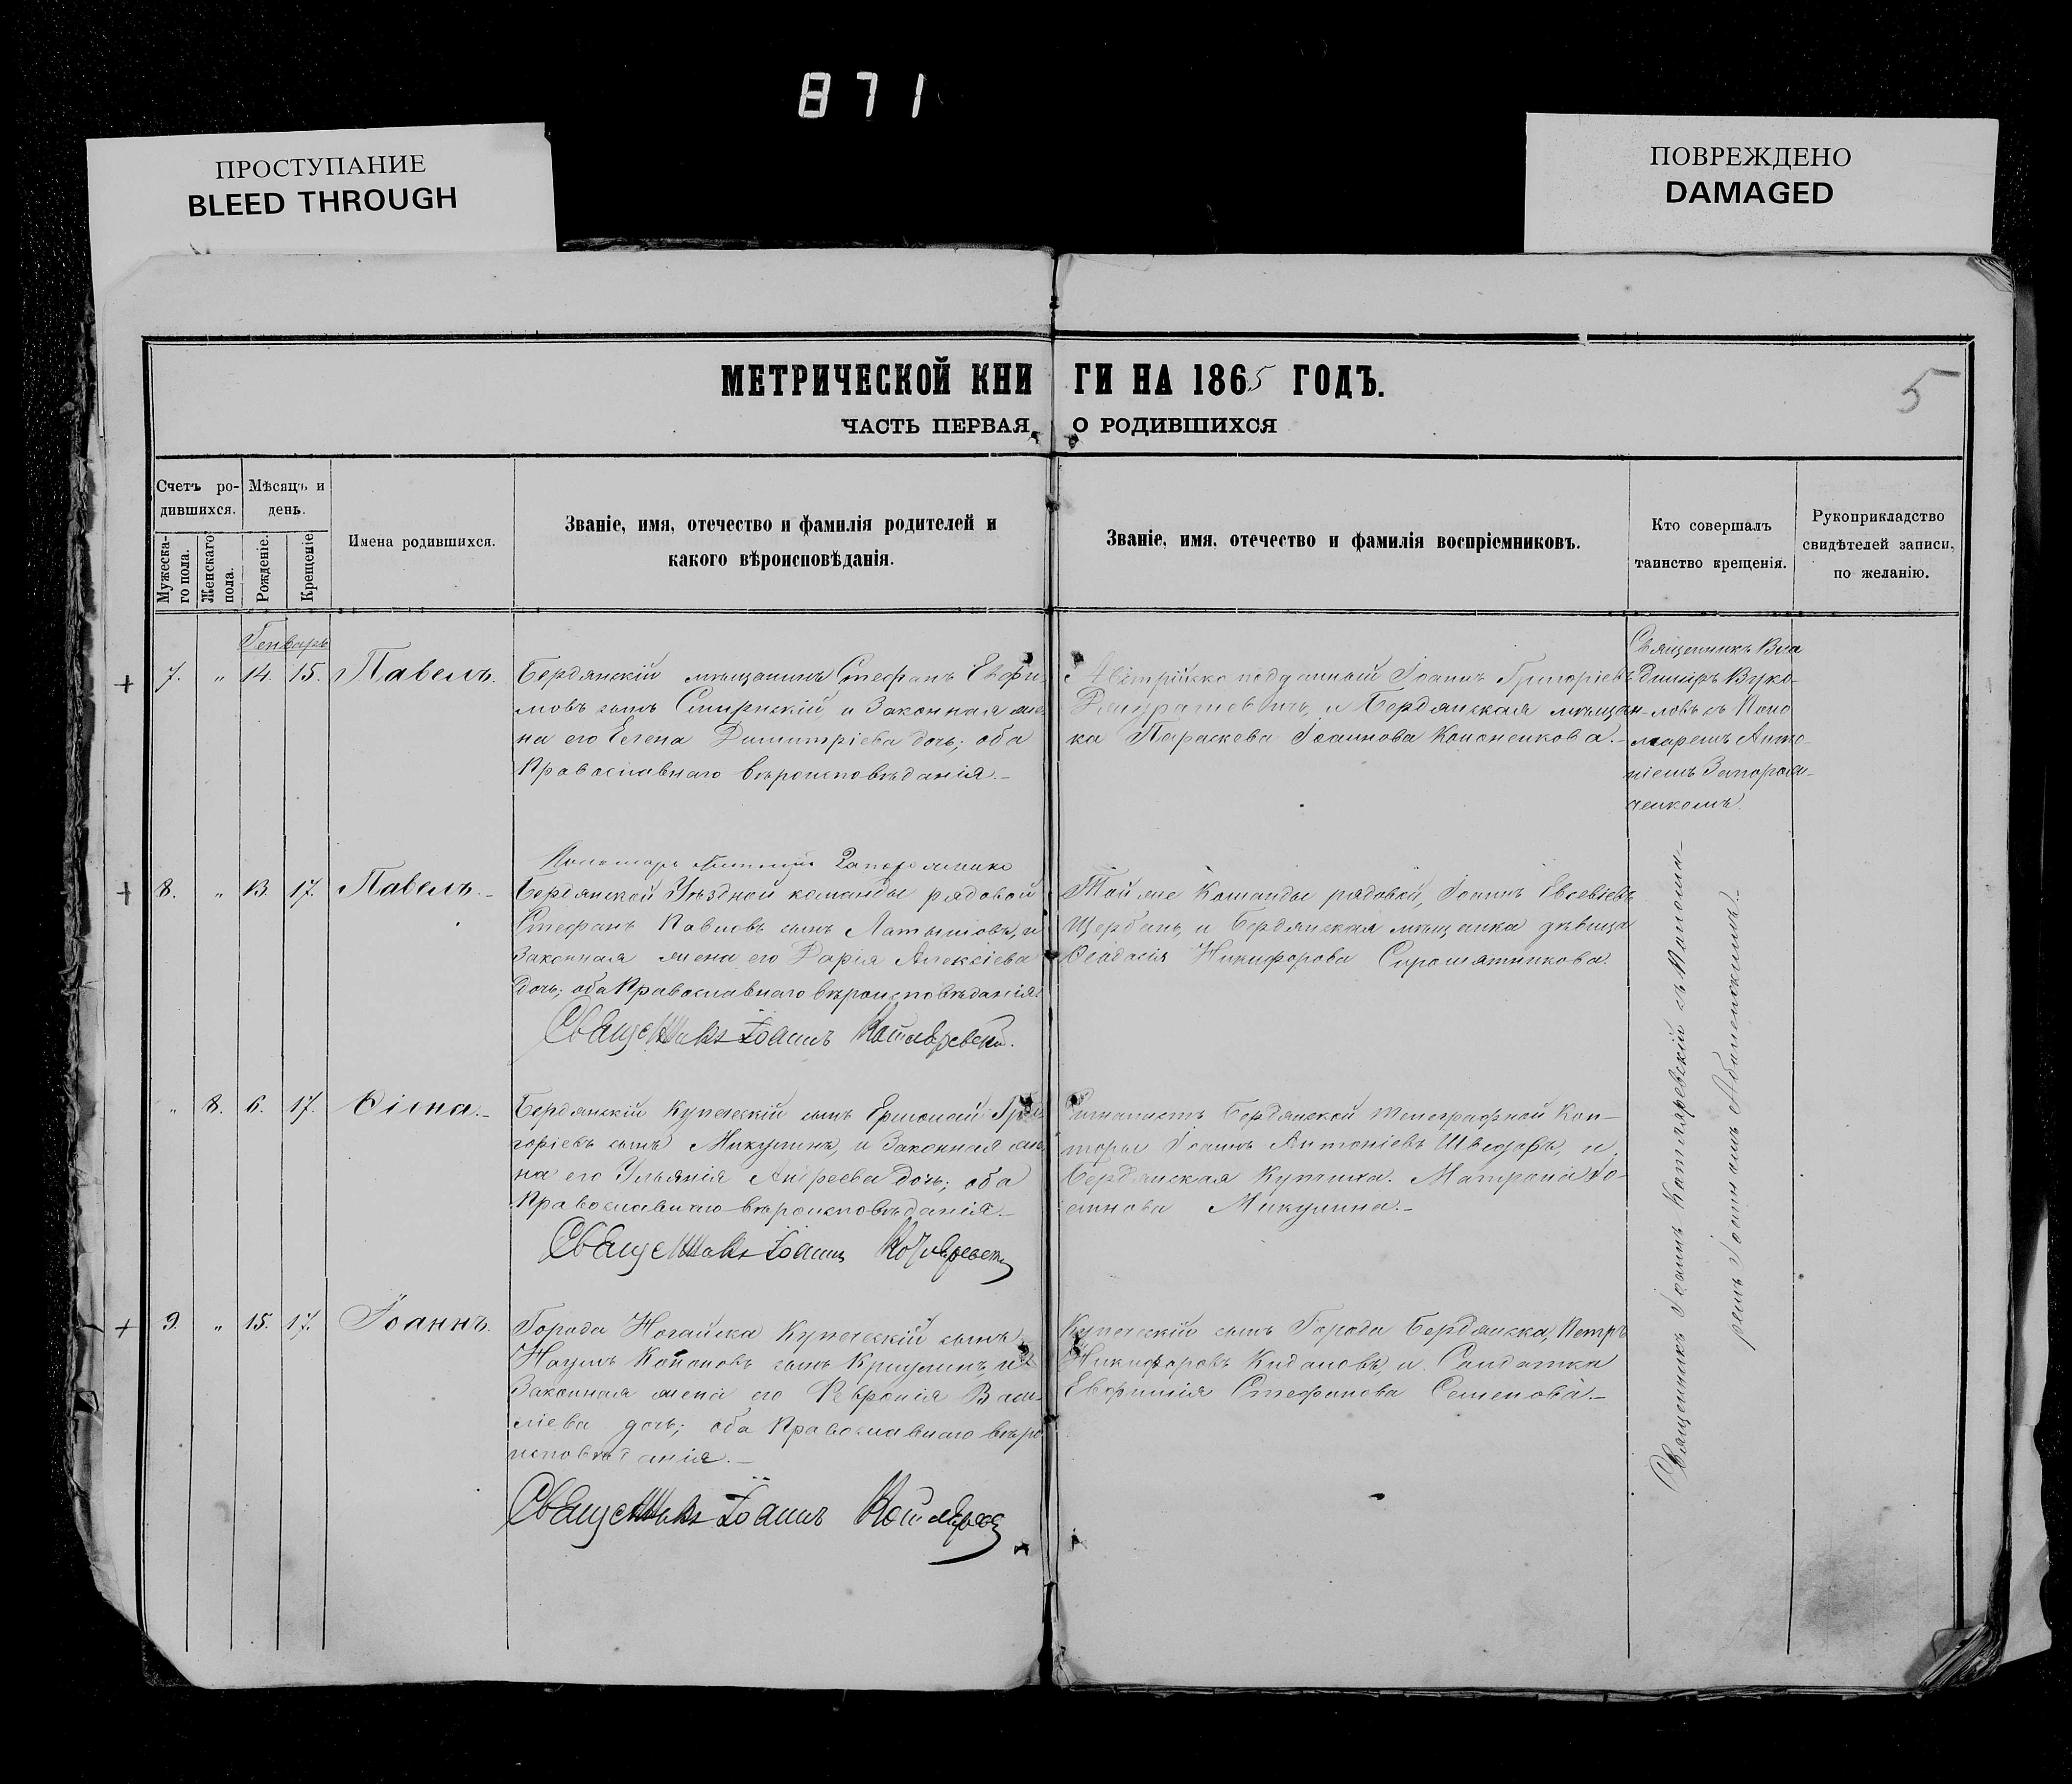 871
ПРОСТУПАНИЕ
BLEED THROUGH
ПОВРЕЖДЕНО
DAMAGED
МЕТРИЧЕСКОЙ КНИГИ НА 1865 ГОДЪ.
5
ЧАСТЬ ПЕРВАЯ, О РОДИВШИХСЯ
Счетъ ро-
дившихся.
Мужеска-
го пола.
Женскаго
пола.
Мѣсяцъ и
день.
Рожденіе.
Крещеніе
Имена родившихся.
Званіе, имя, отечество и фамилія родителей и
какого вѣроисповѣданія.
Званіе, имя, отечество и фамилія воспріемниковъ.
Кто совершалъ
таинство крещенія.
Рукоприкладство
свидѣтелей записи,
по желанію.
Генварь
+ 7. " 14. 15. Павелъ.
Бердянскій мѣщанинъ Стефанъ Евфи-
мовъ сынъ и Законная же-
на его Елена Димитріева дочь; оба
Православнаго вѣроисповѣданія.–
Австрійско подданный Іоаннъ Григоріевъ
и Бердянская мѣщан-
ка Параскева Іоаннова Кононенкова.–
Священникъ Вла
димиръ Вуко-
ловъ съ Поно
маремъ Анто-
ніемъ Запорож-
ченкомъ.
Пономарь Антоній
+ 8. " 13. 17. Павелъ.–
Бердянской Уѣздной команды рядовой
Стефанъ Павловъ сынъ Латышовъ, и
Законная жена его Дарія Алексіева
дочь; оба Православнаго вѣроисповѣданія.
Священникъ Іоаннъ Котляревскій.
Той же Команды рядовой, Іоаннъ Евсевіевъ
Щербань, и Бердянская мѣщанка дѣвица
Феодосія Никифорова Сыромятникова.
" 8. 6. 17.
Бердянскій Купеческій сынъ Ермолай Гри-
горіевъ сынъ Микулинъ, и Законная же-
на его Ульянія Андреева дочь; оба
Православнаго вѣроисповѣданія.–
Священникъ Іоаннъ Котляревскій
Сигналистъ Бердянской телеграфной Кон-
торы Іоаннъ Антоніевъ и
Бердянская Купчиха Матрона Іо-
аннова Микулина.–
+ 9. " 15. 17. Іоаннъ.
Города Ногайска Купеческій сынъ
Наумъ Кононовъ сынъ и
Законная жена его Февронія Васи-
ліева дочь; оба Православнаго вѣро
исповѣданія.–
Священникъ Іоаннъ Котляревскій
Купеческій сынъ Города Бердянска, Петръ
Никифоровъ и Солдатка
Евфимія Стефанова Семенова.–
Священникъ Іоаннъ Котляревскій съ Понома-
ремъ Іоанномъ